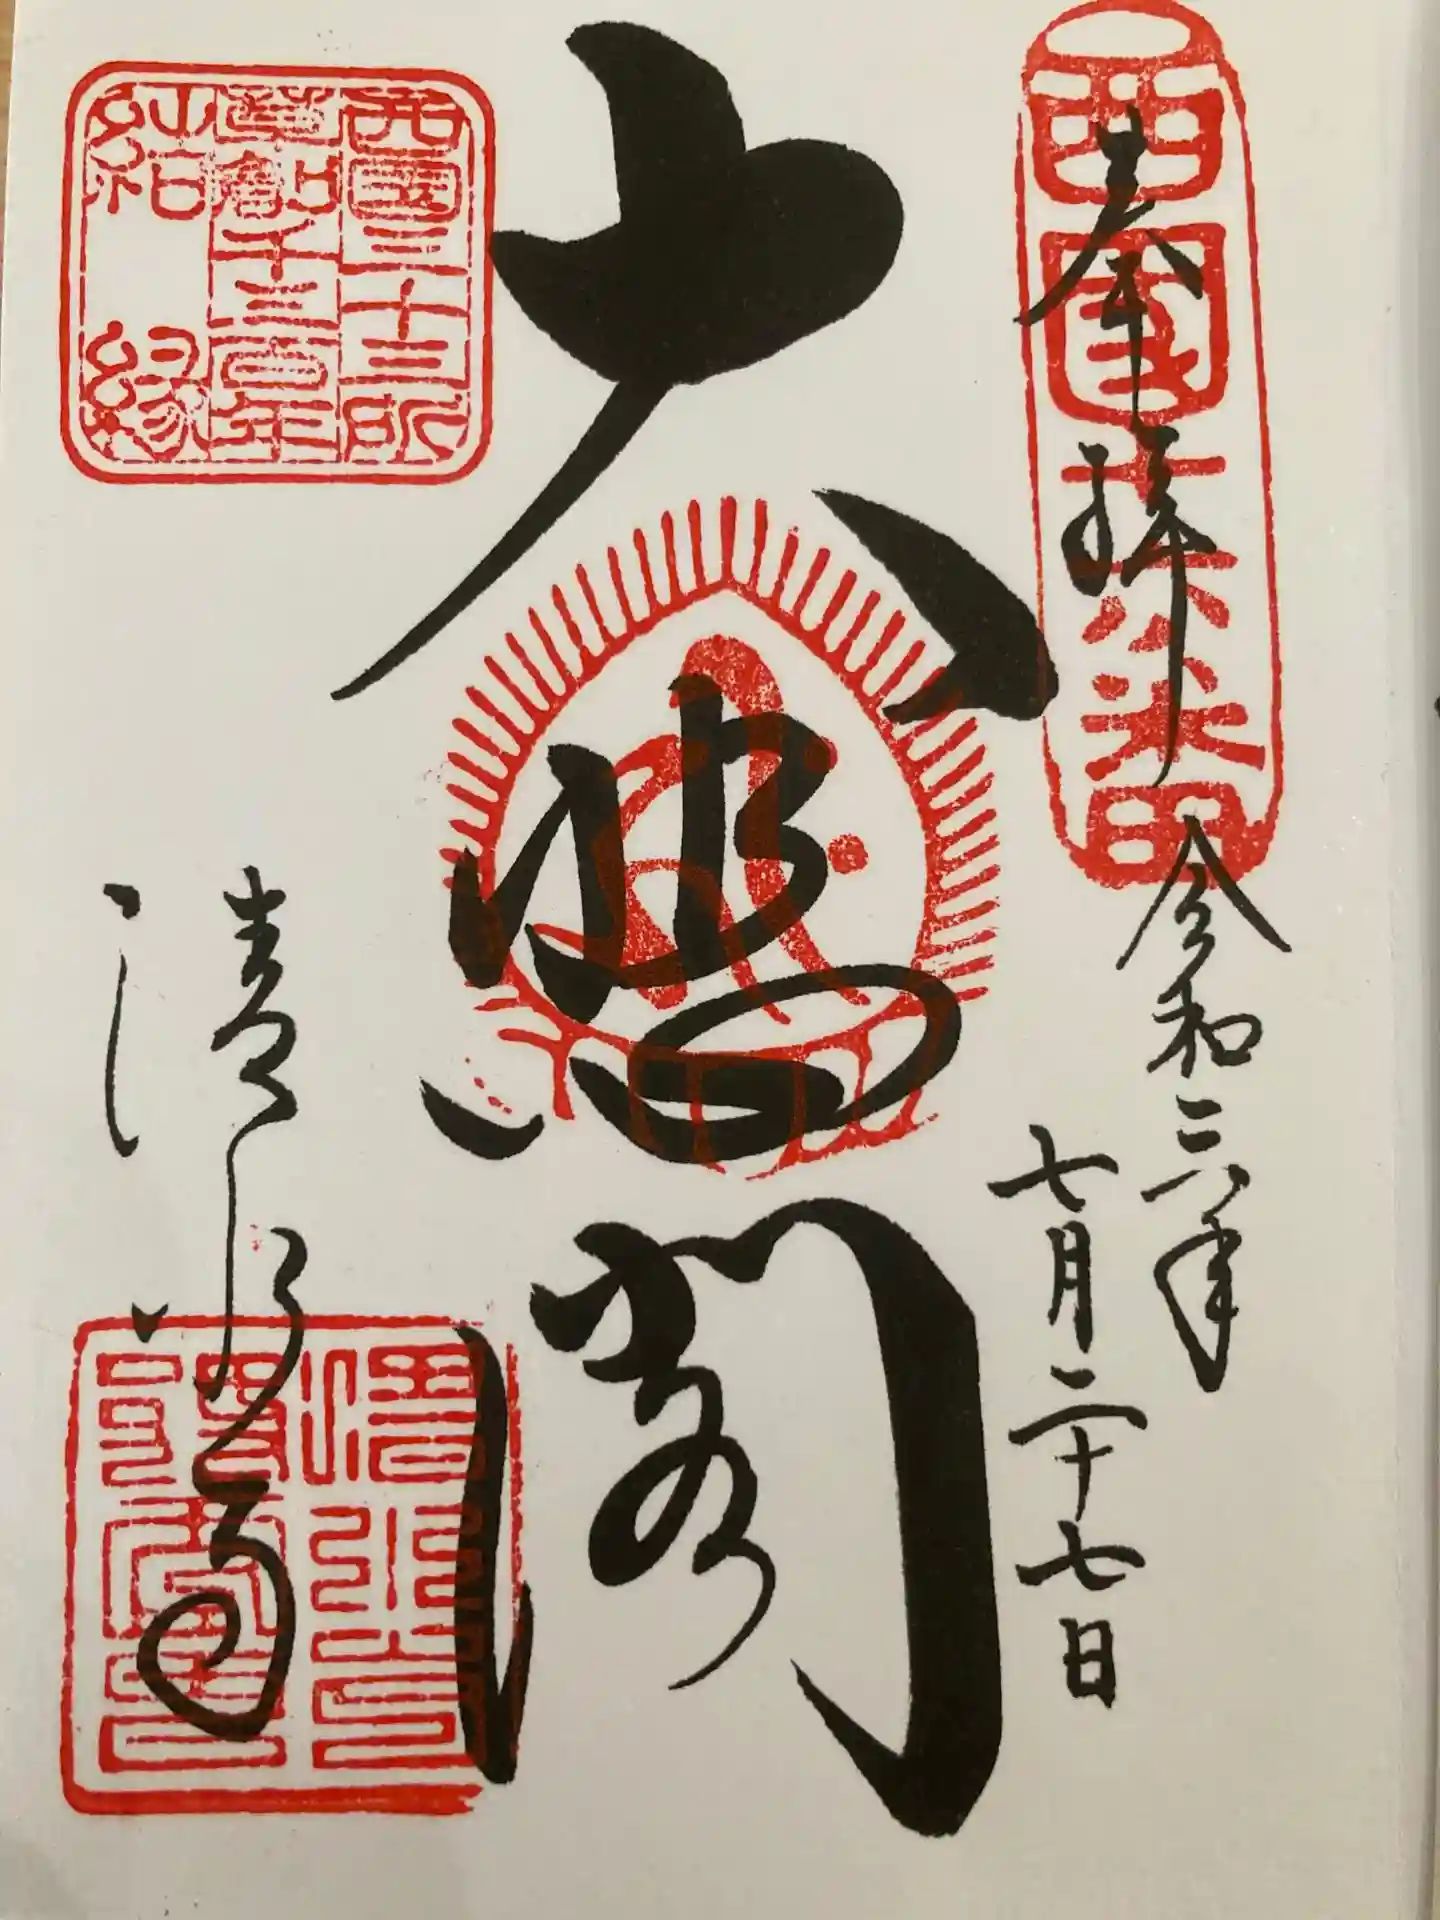 奉拝
西國十六番
令和三年
七月二十七日
大悲閣
清水寺
西國三十三所
草創千三百年
結縁